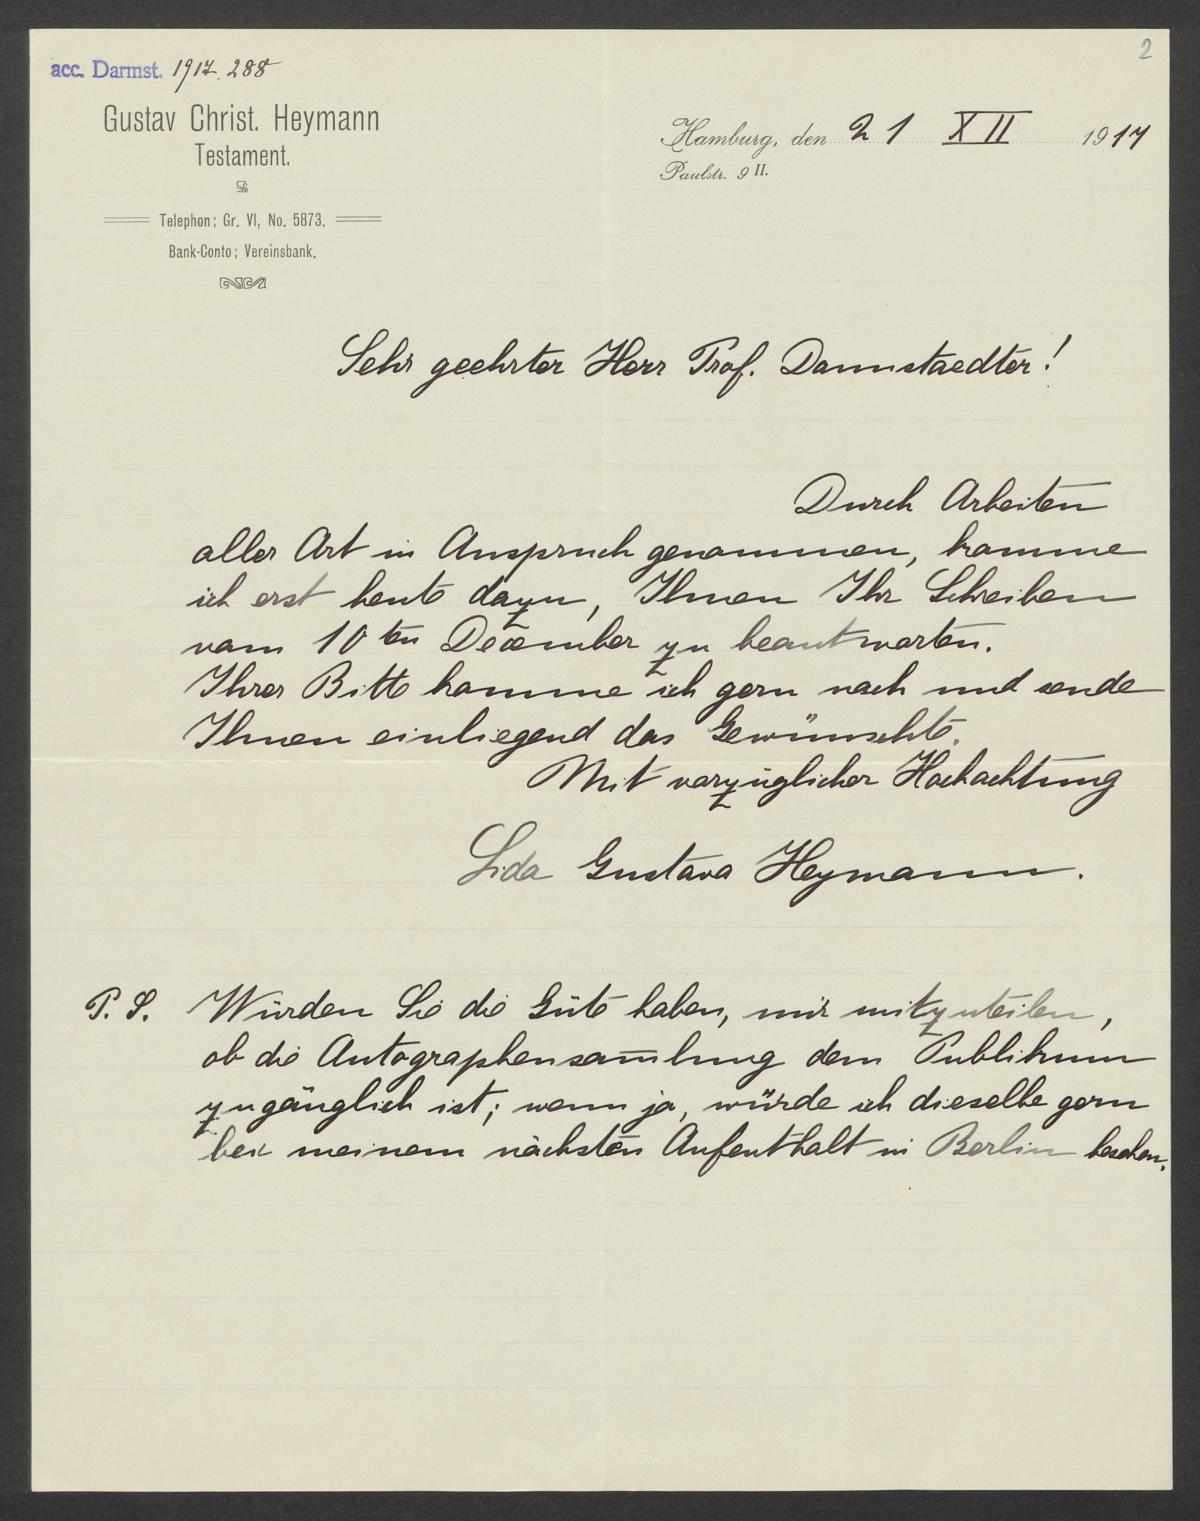 2
acc. Darmst. 1917. 288
Gustav Christ. Heymann
Testament.
Hamburg, den 21 XII 1917
Paulstr. 9 II.
Telephon; Gr. VI, No. 5873.
Bank-Conto; Vereinsbank.
Sehr geehrter Herr Prof. Darmstaedter!
Durch Arbeiten
aller Art in Anspruch genommen, komme
ich erst heute dazu, Ihnen Ihr Schreiben
vom 10ten December zu beantworten.
Ihrer Bitte komme ich gern nach und sende
Ihnen einliegend das Gewünschte.
Mit vorzüglicher Hochachtung
Lida Gustava Heymann.
P.S. Würden Sie die Güte haben, mir mitzuteilen,
ob die Autographensam̅lung dem Publikum
zugänglich ist; wenn ja, würde ich dieselbe gern
bei meinem nächsten Aufenthalt in Berlin besehen.